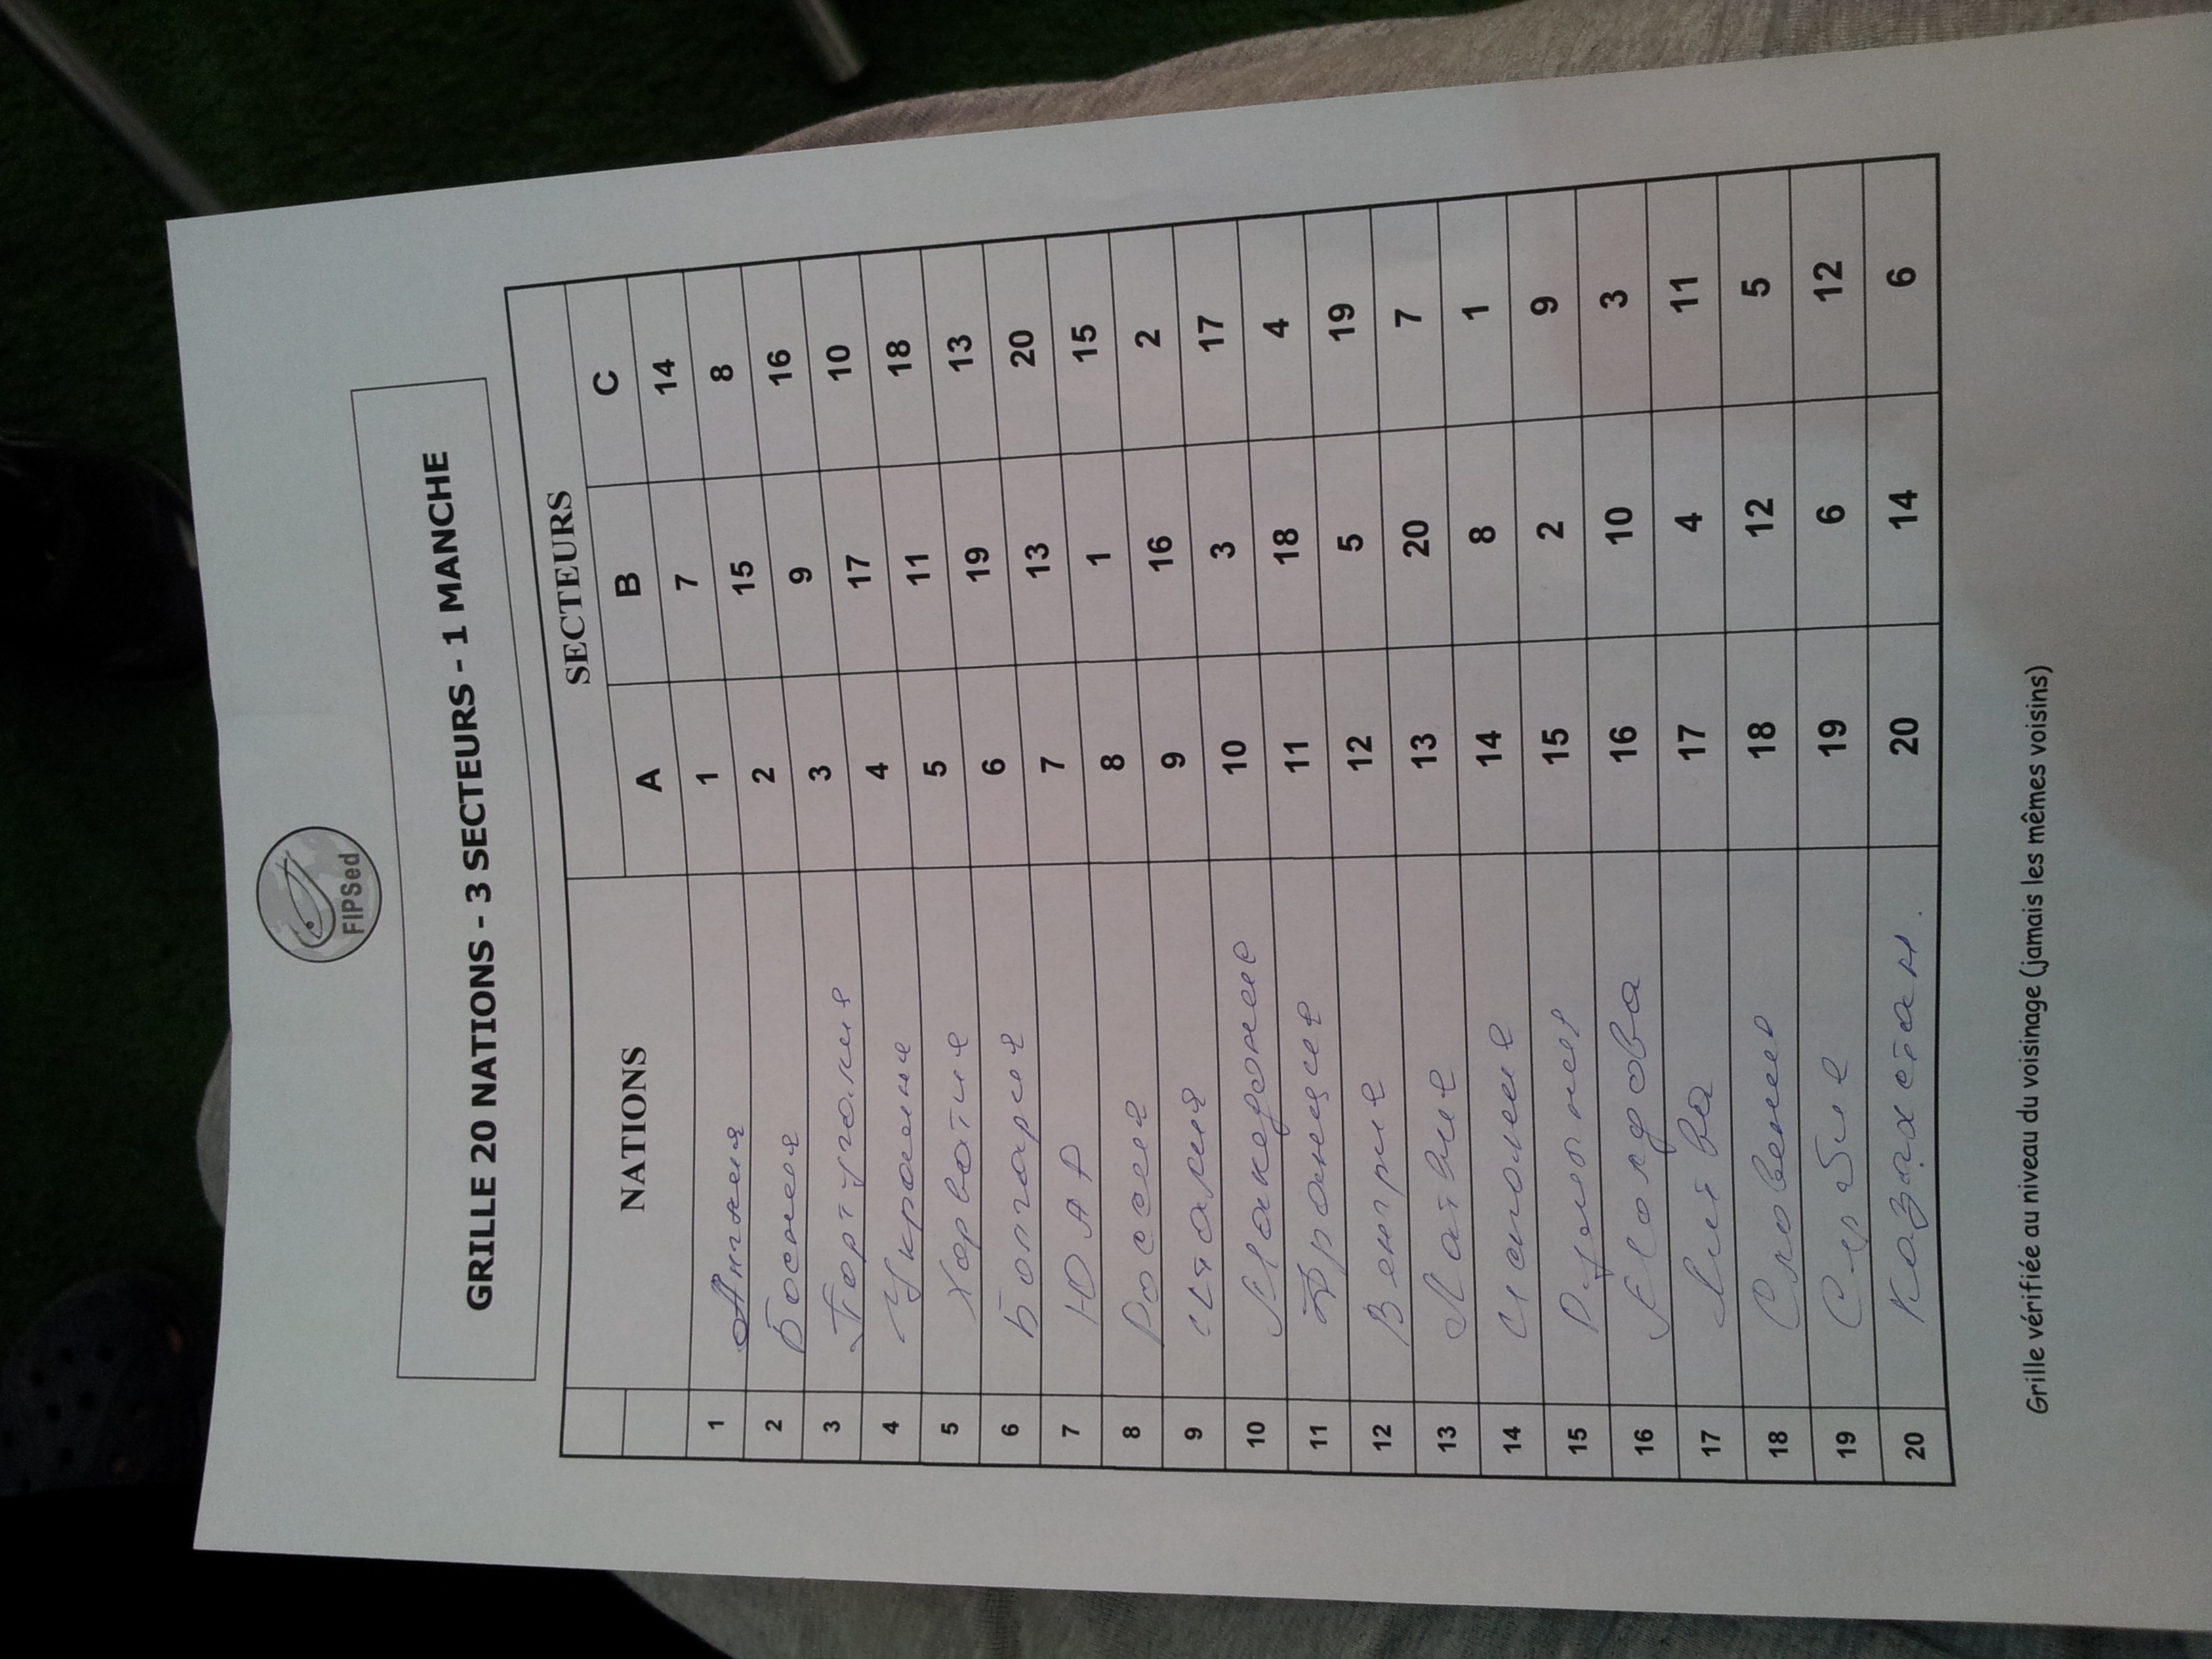 FIPSed
GRILLE 20 NATIONS - 3 SECTEURS - 1 MANCHE
NATIONS SECTEURS
A B C
1 Англия 1 7 14
2 Босния 2 15 8
3 Португалия 3 9 16
4 Украина 4 17 10
5 Хорватия 5 11 18
6 Болгария 6 19 13
7 ЮАР 7 13 20
8 Россия 8 1 15
9 Италия 9 16 2
10 Македония 10 3 17
11 Франция 11 18 4
12 Венгрия 12 5 19
13 Латвия 13 20 7
14 Испания 14 8 1
15 Румыния 15 2 9
16 Молдова 16 10 3
17 Литва 17 4 11
18 Словения 18 12 5
19 Сербия 19 6 12
20 Казахстан. 20 14 6
Grille vérifiée au niveau du voisinage (jamais les mêmes voisins)